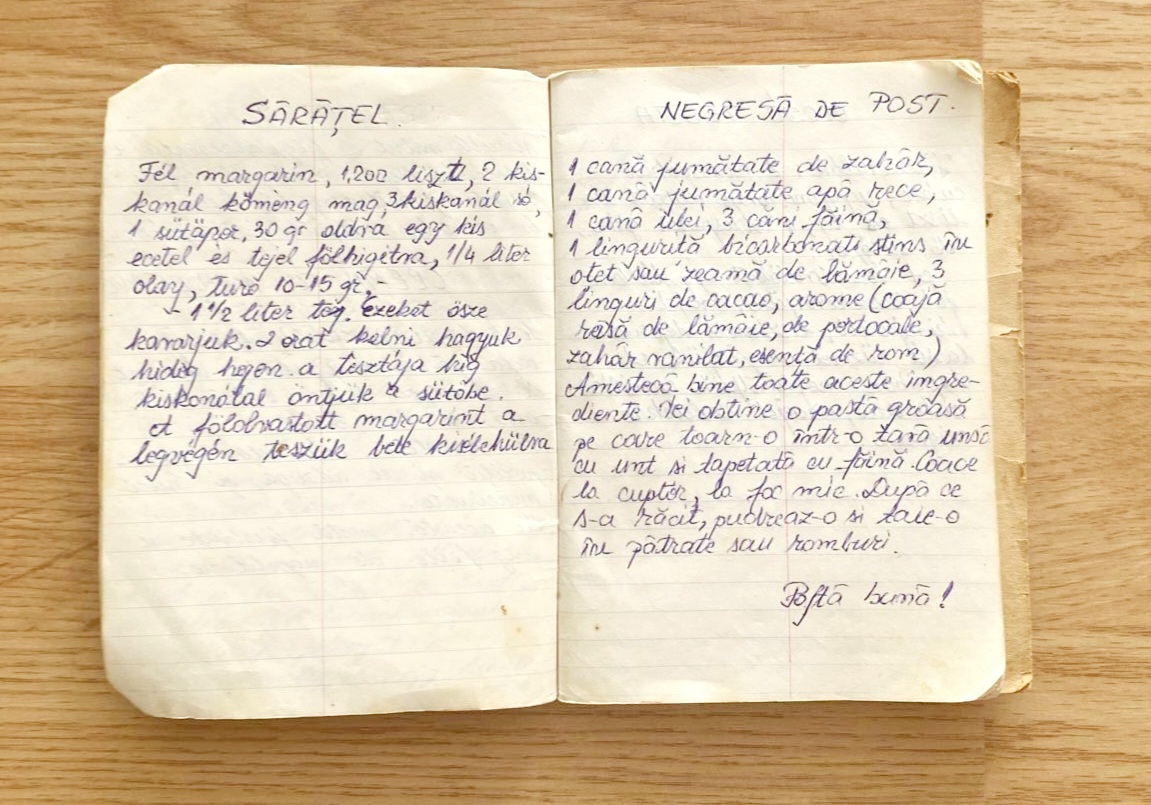 SĂRĂȚEL.
Fél margarin, 1,200 liszt, 2 kis-
kanál kömèng mag, 3 kiskanál só,
1 sütäpor, 30 gr oldva egy kis
ecetel és tejel fölhigitva, 1/4 liter
olay, turó 10-15 gr,-
- 1 1/2 liter tej. Ezeket ösze
kavarjuk. 2 orat kelni hagyuk
hideg hejen a tesztája hig
kiskanátal öntjük a sütöbe.
A fölolvastott margarint a
legvégén teszük bele kisélehülva
NEGRESĂ DE POST.
1 cană jumătate de zahăr,
1 cană jumătate apă rece,
1 cană ulei, 3 căni făină,
1 linguriță bicarbonati stins în
otet sau zeamă de lămâie, 3
linguri de cacao, arome (coajă
rasă de lămâie, de portocale,
zahăr vanilat, esență de rom)
Amestecă bine toate aceste ingre-
diente. Vei obtine o pastă groasă
pe care toarn-o într-o tavă unsă
cu unt si tapetată cu făină. Coace
la cuptor, la foc mic. După ce
s-a răcit, pudreaz-o si taie-o
în pătrate sau romburi.
Poftă bună!